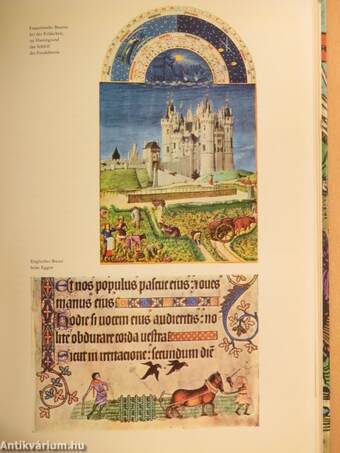 Französische Bauern
bei der Feldarbeit,
im Hintergrund
das Schloß
des Feudalherrn
Englischer Bauer
beim Eggen
Et nos populus pascue eius: ⁊ oues
manus eius
Hodie si uocem eius audieritis: no
lite obdurare corda uestra
Sicut in irritacione: secundum diē
Antikvárium.hu